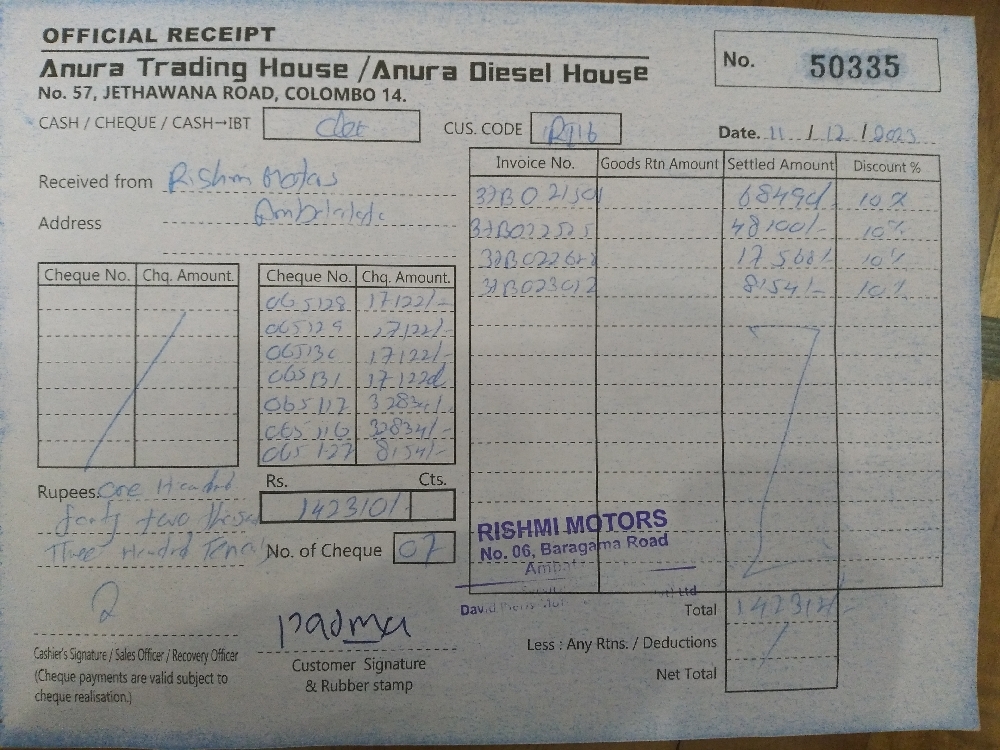 OFFICIAL RECEIPT
Anura Trading House / Anura Diesel House
No. 57, JETHAWANA ROAD, COLOMBO 14.
No. 50335
CASH / CHEQUE / CASH→IBT
CUS. CODE
Date. 11 / 12 / 2023
Received from Rishmi Motors
Address
Cheque No. Chq. Amount.
Cheque No. Chq. Amount.
065128 17122/-
065129 17122/-
065130 17122/-
065131 17122/-
065117 32834/-
065116 32834/-
065127 8154/-
Rs. Cts.
142310/-
No. of Cheque 07
Rupees. One Hundred
forty two thousand
Three Hundred Ten only
Invoice No. Goods Rtn Amount Settled Amount Discount %
37B021501 68490/- 10%
37B022525 48100/- 10%
37B022622 17568/- 10%
37B023012 8154/- 10%
RISHMI MOTORS
No. 06, Baragama Road
Total
Less : Any Rtns. / Deductions
Net Total
Cashier's Signature / Sales Officer / Recovery Officer
(Cheque payments are valid subject to
cheque realisation.)
Padma
Customer Signature
& Rubber stamp